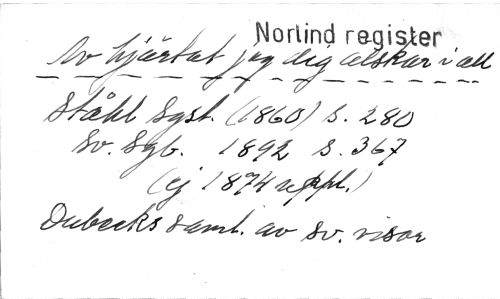 Norlind register
Av hjärtat jag dig älskar i all
Ståhl Sgst. (1860) s. 280
Sv. Sgb. 1892 s. 367
(ej 1874 uppl.)
Dubecks saml. av sv. visor